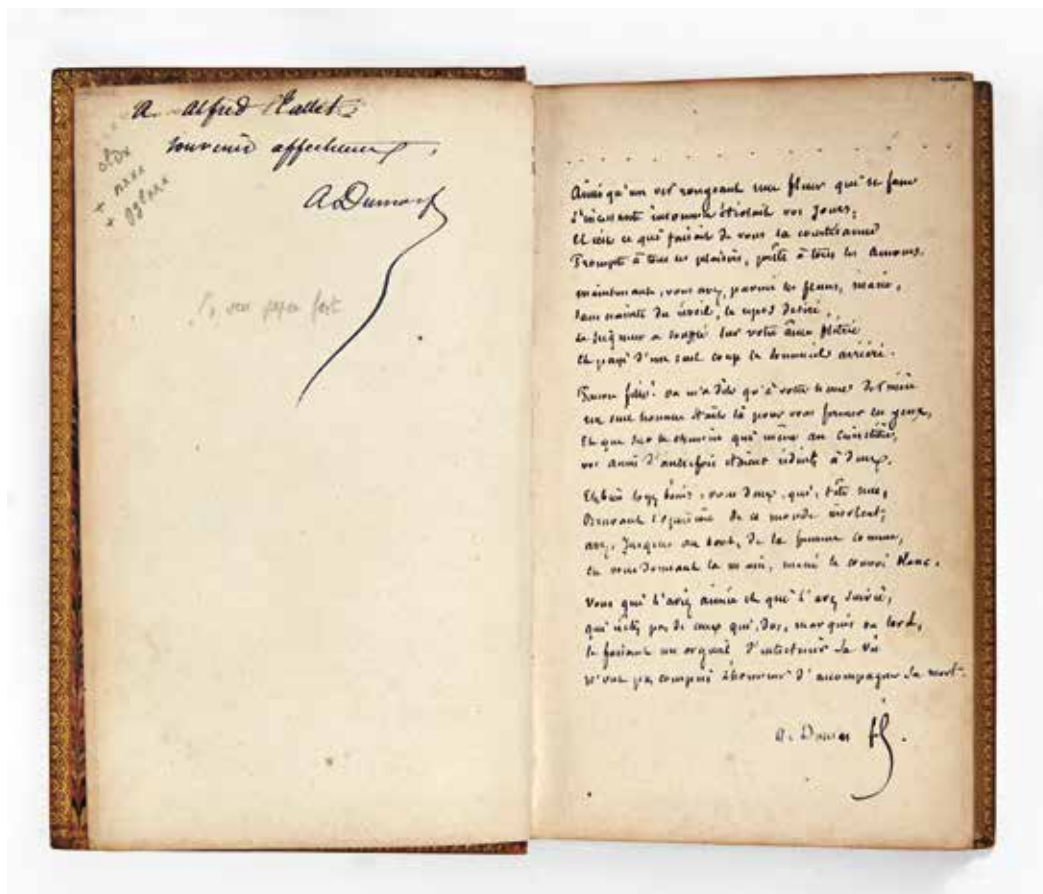 A. Alfred
Souvenir affectueux.
A Dumas f
sur papier fort
Ainsi qu'un ver rongeant une fleur qui se fane
L'incessante insomnie étiolait vos jours;
Et c'est ce qui faisait de vous la courtisane
Prompte à tous les plaisirs, prête à tous les amours.
Maintenant, vous avez, parmi les fleurs, Marie,
Sans crainte du réveil, le repos désiré,
Le Seigneur a soufflé sur votre âme flétrie
Et payé d'un seul coup le sommeil arriéré.
Pauvre fille! on m'a dit qu'à votre heure dernière
un seul homme était là pour vous fermer les yeux,
Et que sur le chemin qui mène au cimetière,
vos amis d'autrefois étaient réduits à deux.
Eh bien soyez bénis, vous deux, qui, tête nue,
Bravant l'opinion de ce monde insolent,
avez, jusques au bout, de la femme connue,
En vous donnant la main, mené le convoi blanc.
Vous qui l'aviez aimée et qui l'avez suivie,
qui n'êtes pas de ceux qui, duc, marquis ou lord,
se faisant un orgueil d'entretenir sa vie
N'ont pas compris l'honneur d'accompagner sa mort.
A. Dumas f.